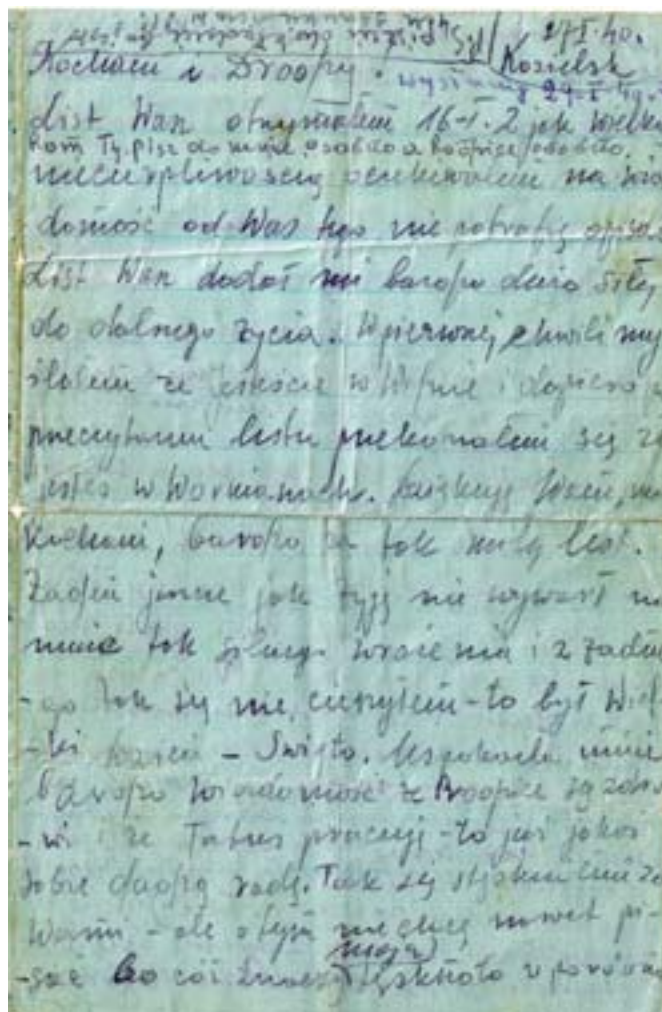 27/I.40.
Kochani i Drodzy. Kozielsk
List Wasz otrzymałem 16-I. Z jak wielką
niecierpliwością oczekiwałem na wia
domość od Was tego nie potrafię opisać
List Wasz dodał mi bardzo dużo siły
do dalszego życia. W pierwszej chwili my
ślałem że jesteście w Wilnie i dopiero
przeczytaniu listu przekonałem się że
jesteś w Wornianach. Dziękuję Wam,
Kochani, bardzo za tak miły list.
Żaden jeszcze jak żyję nie wywarł na
mnie tak silnego wrażenia i z żadne
-go tak się nie cieszyłem - to był Wiel
-ki dzień - Święto. Uspokoiła mnie
bardzo wiadomość że Rodzice są zdro
-wi i że Tatuś pracuje - to już jakoś
sobie dadzą radę. Tak się stęskniłem za
Wami - ale o tym nie chcę nawet pi-
moja
-sać bo cóż znaczy tęsknota w porówna